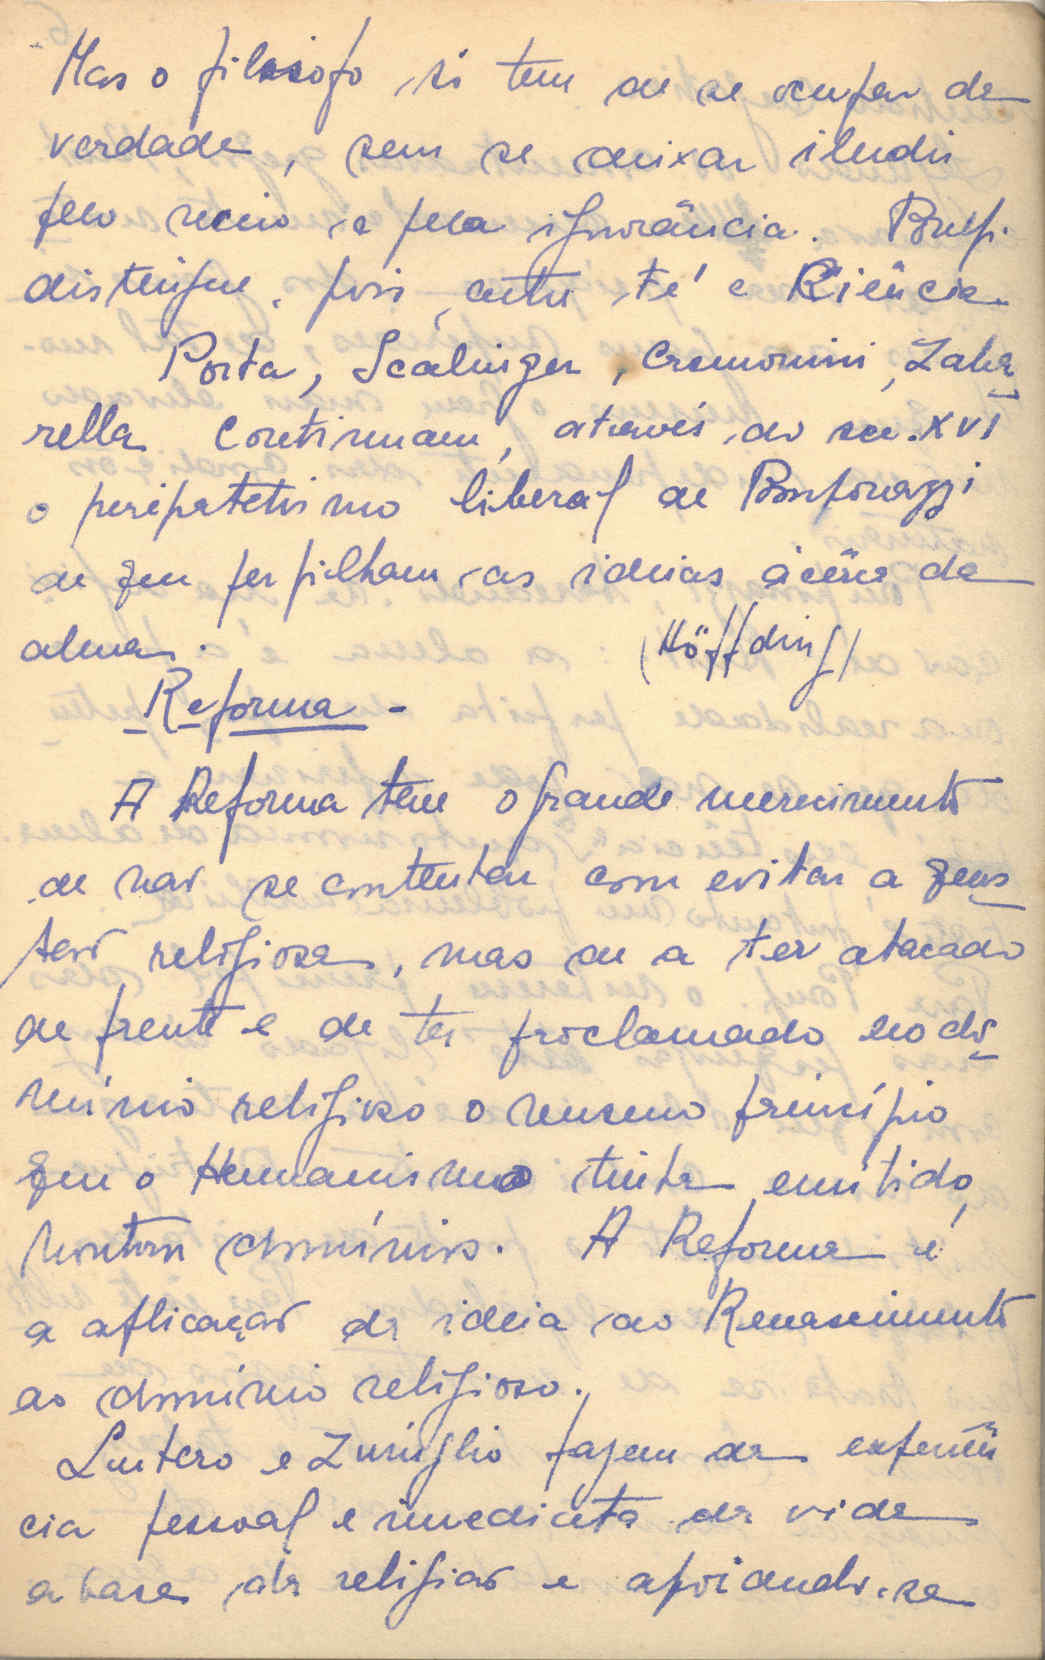 Mas o filósofo só tem de se ocupar da
verdade, sem se deixar iludir
pelo receio e pela ignorância. Pomp.
distingue, pois, entre Fé e Ciência.
Porta, Scalinger, Cremonini, Zaba
rella continuam, através do séc. XVI
o peripatetismo liberal de Pomponazzi
de quem perfilham as ideias àcêrca da
alma.
(Höffding)
Reforma -
A Reforma tem o grande merecimento
de não se contentar com evitar a ques
tão religiosa, mas de a ter atacado
de frente e de ter proclamado no do
mínio religioso o mesmo princípio
que o Humanismo tinha emitido
noutros domínios. A Reforma é
a aplicação da ideia do Renascimento
ao domínio religioso.
Lutero e Zuinglio fazem da experiên
cia pessoal e imediata da vida
a base da religião e apoiando-se